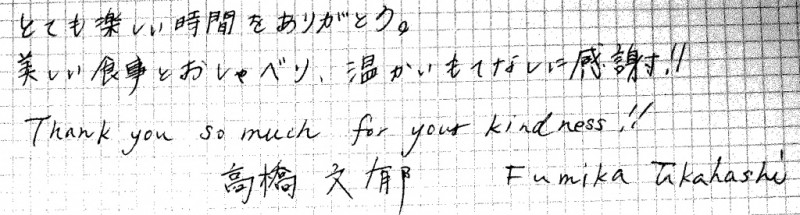 とても楽しい時間をありがとう。
美しい食事とおしゃべり、温かいもてなしに感謝!!
Thank you so much for your kindness!!
高橋 文郁 Fumika Takahashi